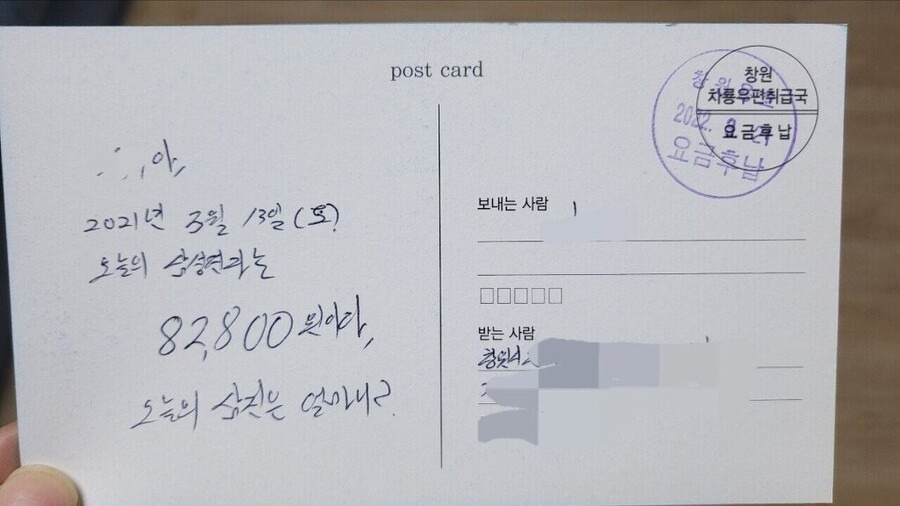 post card
창원
차룡우편취급국
요금후납
창원
2022.
요금후납
아,
2021년 3월 13일(토)
오늘의 삼성전자는
82,800원이다,
오늘의 삼전은 얼마니?
보내는 사람
받는 사람
창원시